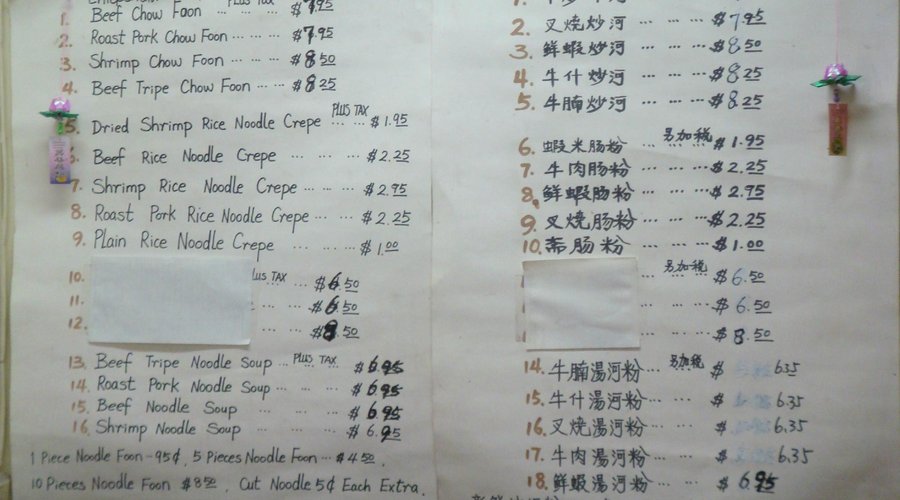 PLUS TAX
1. Beef Chow Foon ... $7.95
2. Roast Pork Chow Foon ... ... $7.95
3. Shrimp Chow Foon ... ... $8.50
4. Beef Tripe Chow Foon ... ... $8.25
PLUS TAX
5. Dried Shrimp Rice Noodle Crepe ... ... $1.95
6. Beef Rice Noodle Crepe ... ... ... $2.25
7. Shrimp Rice Noodle Crepe ... ... ... $2.95
8. Roast Pork Rice Noodle Crepe ... ... $2.25
9. Plain Rice Noodle Crepe ... ... ... $1.00
10. PLUS TAX ... ... $6.50
11. ... ... $6.50
12. ... ... $8.50
13. Beef Tripe Noodle Soup ... PLUS TAX ... $6.95
14. Roast Pork Noodle Soup ... ... $6.95
15. Beef Noodle Soup ... ... ... $6.95
16. Shrimp Noodle Soup ... ... ... $6.95
1 Piece Noodle Foon - 95¢, 5 Pieces Noodle Foon ... $4.50,
10 Pieces Noodle Foon $8.50, Cut Noodle 5¢ Each Extra.
2. 叉燒炒河 ... ... $7.95
3. 鮮蝦炒河 ... ... $8.50
4. 牛什炒河 ... ... ... $8.25
5. 牛腩炒河 ... ... ... $8.25
6. 蝦米肠粉 ... 另加税 $1.95
7. 牛肉肠粉 ... ... ... $2.25
8. 鮮蝦肠粉 ... ... ... $2.95
9. 叉燒肠粉 ... ... ... $2.25
10. 斋肠粉 ... ... ... $1.00
另加税 $6.50
... ... $6.50
... ... $8.50
14. 牛腩湯河粉 ... 另加税 $ 6.35
15. 牛什湯河粉 ... ... $ 6.35
16. 叉燒湯河粉 ... ... $ 6.35
17. 牛肉湯河粉 ... ... $ 6.35
18. 鮮蝦湯河粉 ... ... $ 6.95